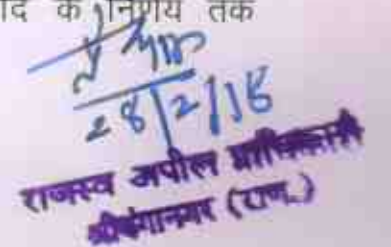 के निर्णय तक
28/2/18
राजस्व अपील प्राधिकारी
श्रीगंगानगर (राज.)